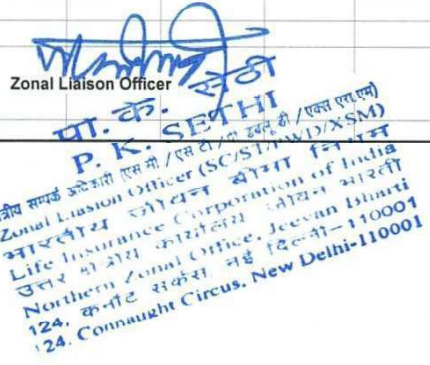 Zonal Liaison Officer
पा. के. सेठी
P. K. SETHI
क्षेत्रीय सम्पर्क अधिकारी (एस सी / एस टी / पी डब्लू डी / एक्स एस एम)
Zonal Liasion Officer (SC/ST/PWD/XSM)
भारतीय जीवन बीमा निगम
Life Insurance Corporation of India
उत्तर क्षेत्रीय कार्यालय जीवन भारती
Northern Zonal Office, Jeevan Bharti
124, कनॉट सर्कस, नई दिल्ली-110001
124, Connaught Circus, New Delhi-110001